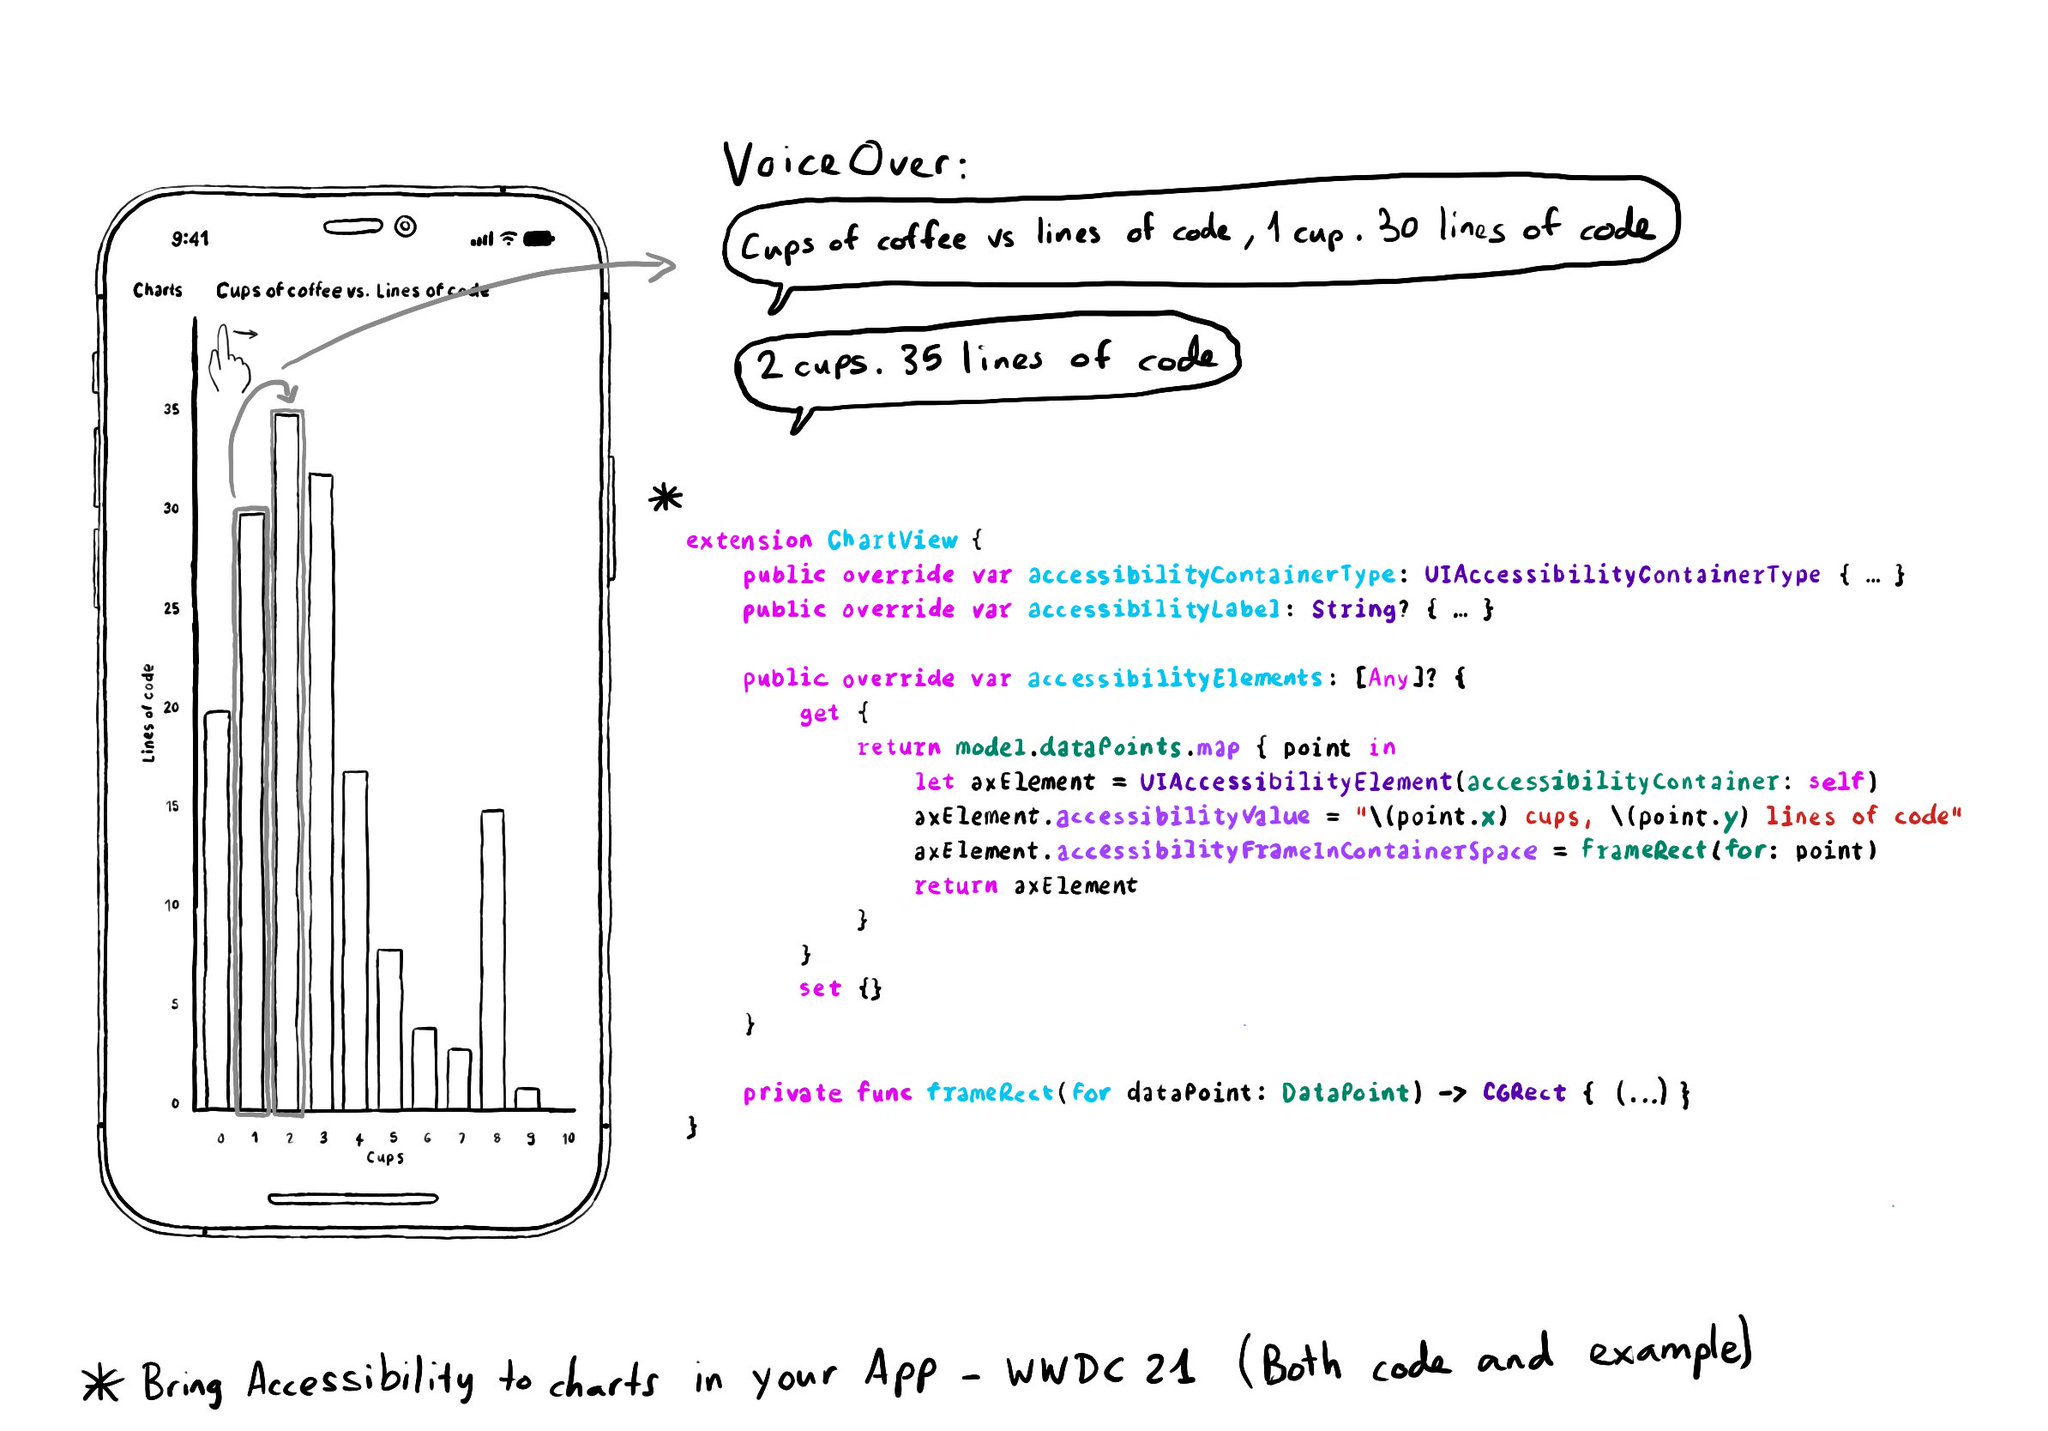 9:41
Charts Cups of coffee vs. Lines of code
35
30
25
20
15
10
5
0
Lines of code
0 1 2 3 4 5 6 7 8 9 10
Cups
VoiceOver:
Cups of coffee vs lines of code, 1 cup. 30 lines of code
2 cups. 35 lines of code
*
extension ChartView {
    public override var accessibilityContainerType: UIAccessibilityContainerType { ... }
    public override var accessibilityLabel: String? { ... }
    public override var accessibilityElements: [Any]? {
        get {
            return model.dataPoints.map { point in
                let axElement = UIAccessibilityElement(accessibilityContainer: self)
                axElement.accessibilityValue = "\(point.x) cups, \(point.y) lines of code"
                axElement.accessibilityFrameInContainerSpace = frameRect(for: point)
                return axElement
            }
        }
        set {}
    }
    private func frameRect(for dataPoint: DataPoint) -> CGRect { (...) }
}
* Bring Accessibility to charts in your App - WWDC 21 (Both code and example)